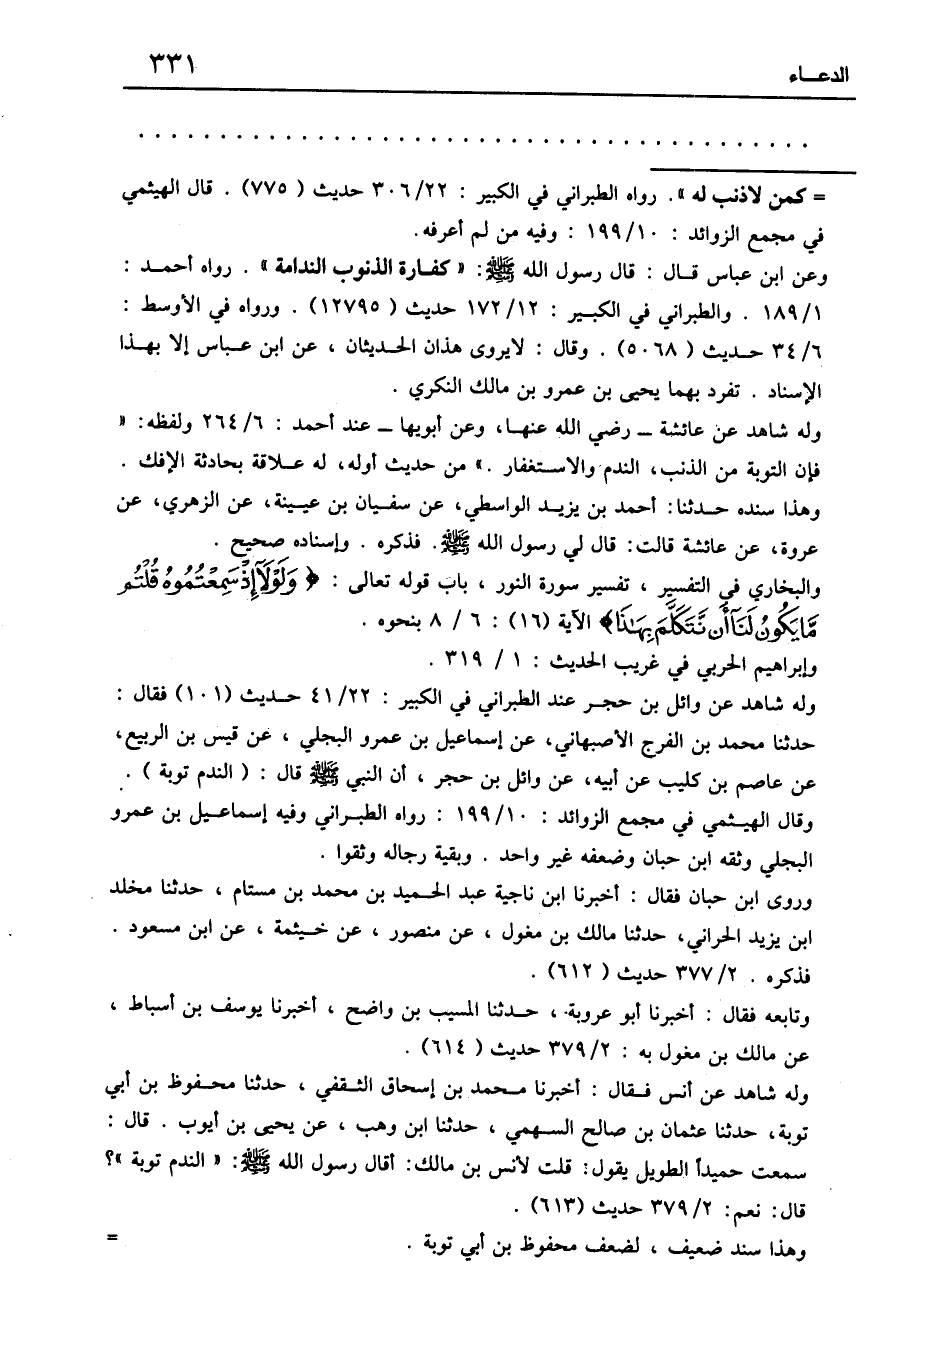 الدعـــاء ٣٣١
. . . . . . . . . . . . . . . . . . . . . . . . . . . . . . . . . . . . . . . . .
= كمن لاذنب له » . رواه الطبراني في الكبير : ٣٠٦/٢٢ حديث ( ٧٧٥) . قال الهيثمي
في مجمع الزوائد : ١٩٩/١٠ : وفيه من لم أعرفه.
وعن ابن عباس قـال : قال رسول الله ﷺ: « كفـارة الذنوب الندامة » . رواه أحمـد :
١٨٩/١ . والطبراني في الكبـير : ١٧٢/١٢ حديث ( ١٢٧٩٥) . ورواه في الأوسط :
٣٤/٦ حـديث ( ٥٠٦٨) . وقال : لايروى هذان الحـديثان ، عن ابن عـباس إلا بهـذا
الإسناد . تفرد بهما يحيى بن عمرو بن مالك النكري .
وله شاهد عن عائشة ـ رضي الله عنهـا، وعن أبويها ـ عند أحمد : ٢٦٤/٦ ولفظه: «
فإن التوبة من الذنب، الندم والاسـتغفار .» من حديث أوله، له عـلاقة بحادثة الإفك .
وهذا سنده حـدثنا: أحمد بن يزيـد الواسطي، عن سفـيان بن عـيينة، عن الزهري، عن
عروة، عن عائشة قالت: قال لي رسول الله ﷺ. فذكره . وإسناده صحيح .
والبخاري في التفسير ، تفسير سورة النور ، باب قوله تعالى : ﴿ وَلَوْلَآ إِذْ سَمِعْتُمُوهُ قُلْتُم
مَّا يَكُونُ لَنَآ أَن نَّتَكَلَّمَ بِهَٰذَا﴾ الآية (١٦) : ٦ / ٨ بنحوه .
وإبراهيم الحربي في غريب الحديث : ١ / ٣١٩ .
وله شاهد عن وائل بن حجـر عند الطبراني في الكبير : ٤١/٢٢ حـديث (١٠١) فقال :
حدثنا محمد بن الفرج الأصبهاني، عن إسماعيل بن عمرو البجلي ، عن قيس بن الربيع،
عن عاصم بن كليب عن أبيه، عن وائل بن حجر ، أن النبي ﷺ قال : ( الندم توبة ) .
وقال الهيـثمي في مجمع الزوائد : ١٩٩/١٠ : رواه الطبـراني وفيه إسماعـيل بن عمرو
البجلي وثقه ابن حبان وضعفه غير واحد . وبقية رجاله وثقوا .
وروى ابن حبان فقال : أخبرنا ابن ناجية عبد الحـميد بن محمد بن مستام ، حدثنا مخلد
ابن يزيد الحراني، حدثنا مالك بن مغول ، عن منصور ، عن خـيثمة ، عن ابن مسعود .
فذكره . ٣٧٧/٢ حديث ( ٦١٢) .
وتابعه فقال : أخبرنا أبو عروبة ، حـدثنا المسيب بن واضح ، أخبرنا يوسف بن أسباط ،
عن مالك بن مغول به : ٣٧٩/٢ حديث ( ٦١٤) .
وله شاهد عن أنس فـقال : أخبرنا مـحمد بن إسحاق الثـقفي ، حدثنا محـفوظ بن أبي
توبة، حدثنا عثمان بن صالح السـهمي ، حدثنا ابن وهب ، عن يحيى بن أيوب . قال :
سمعت حميداً الطويل يقول: قلت لأنس بن مالك: أقال رسول الله ﷺ: « الندم توبة »؟
قال: نعم: ٣٧٩/٢ حديث (٦١٣) .
وهذا سند ضعيف ، لضعف محفوظ بن أبي توبة . =